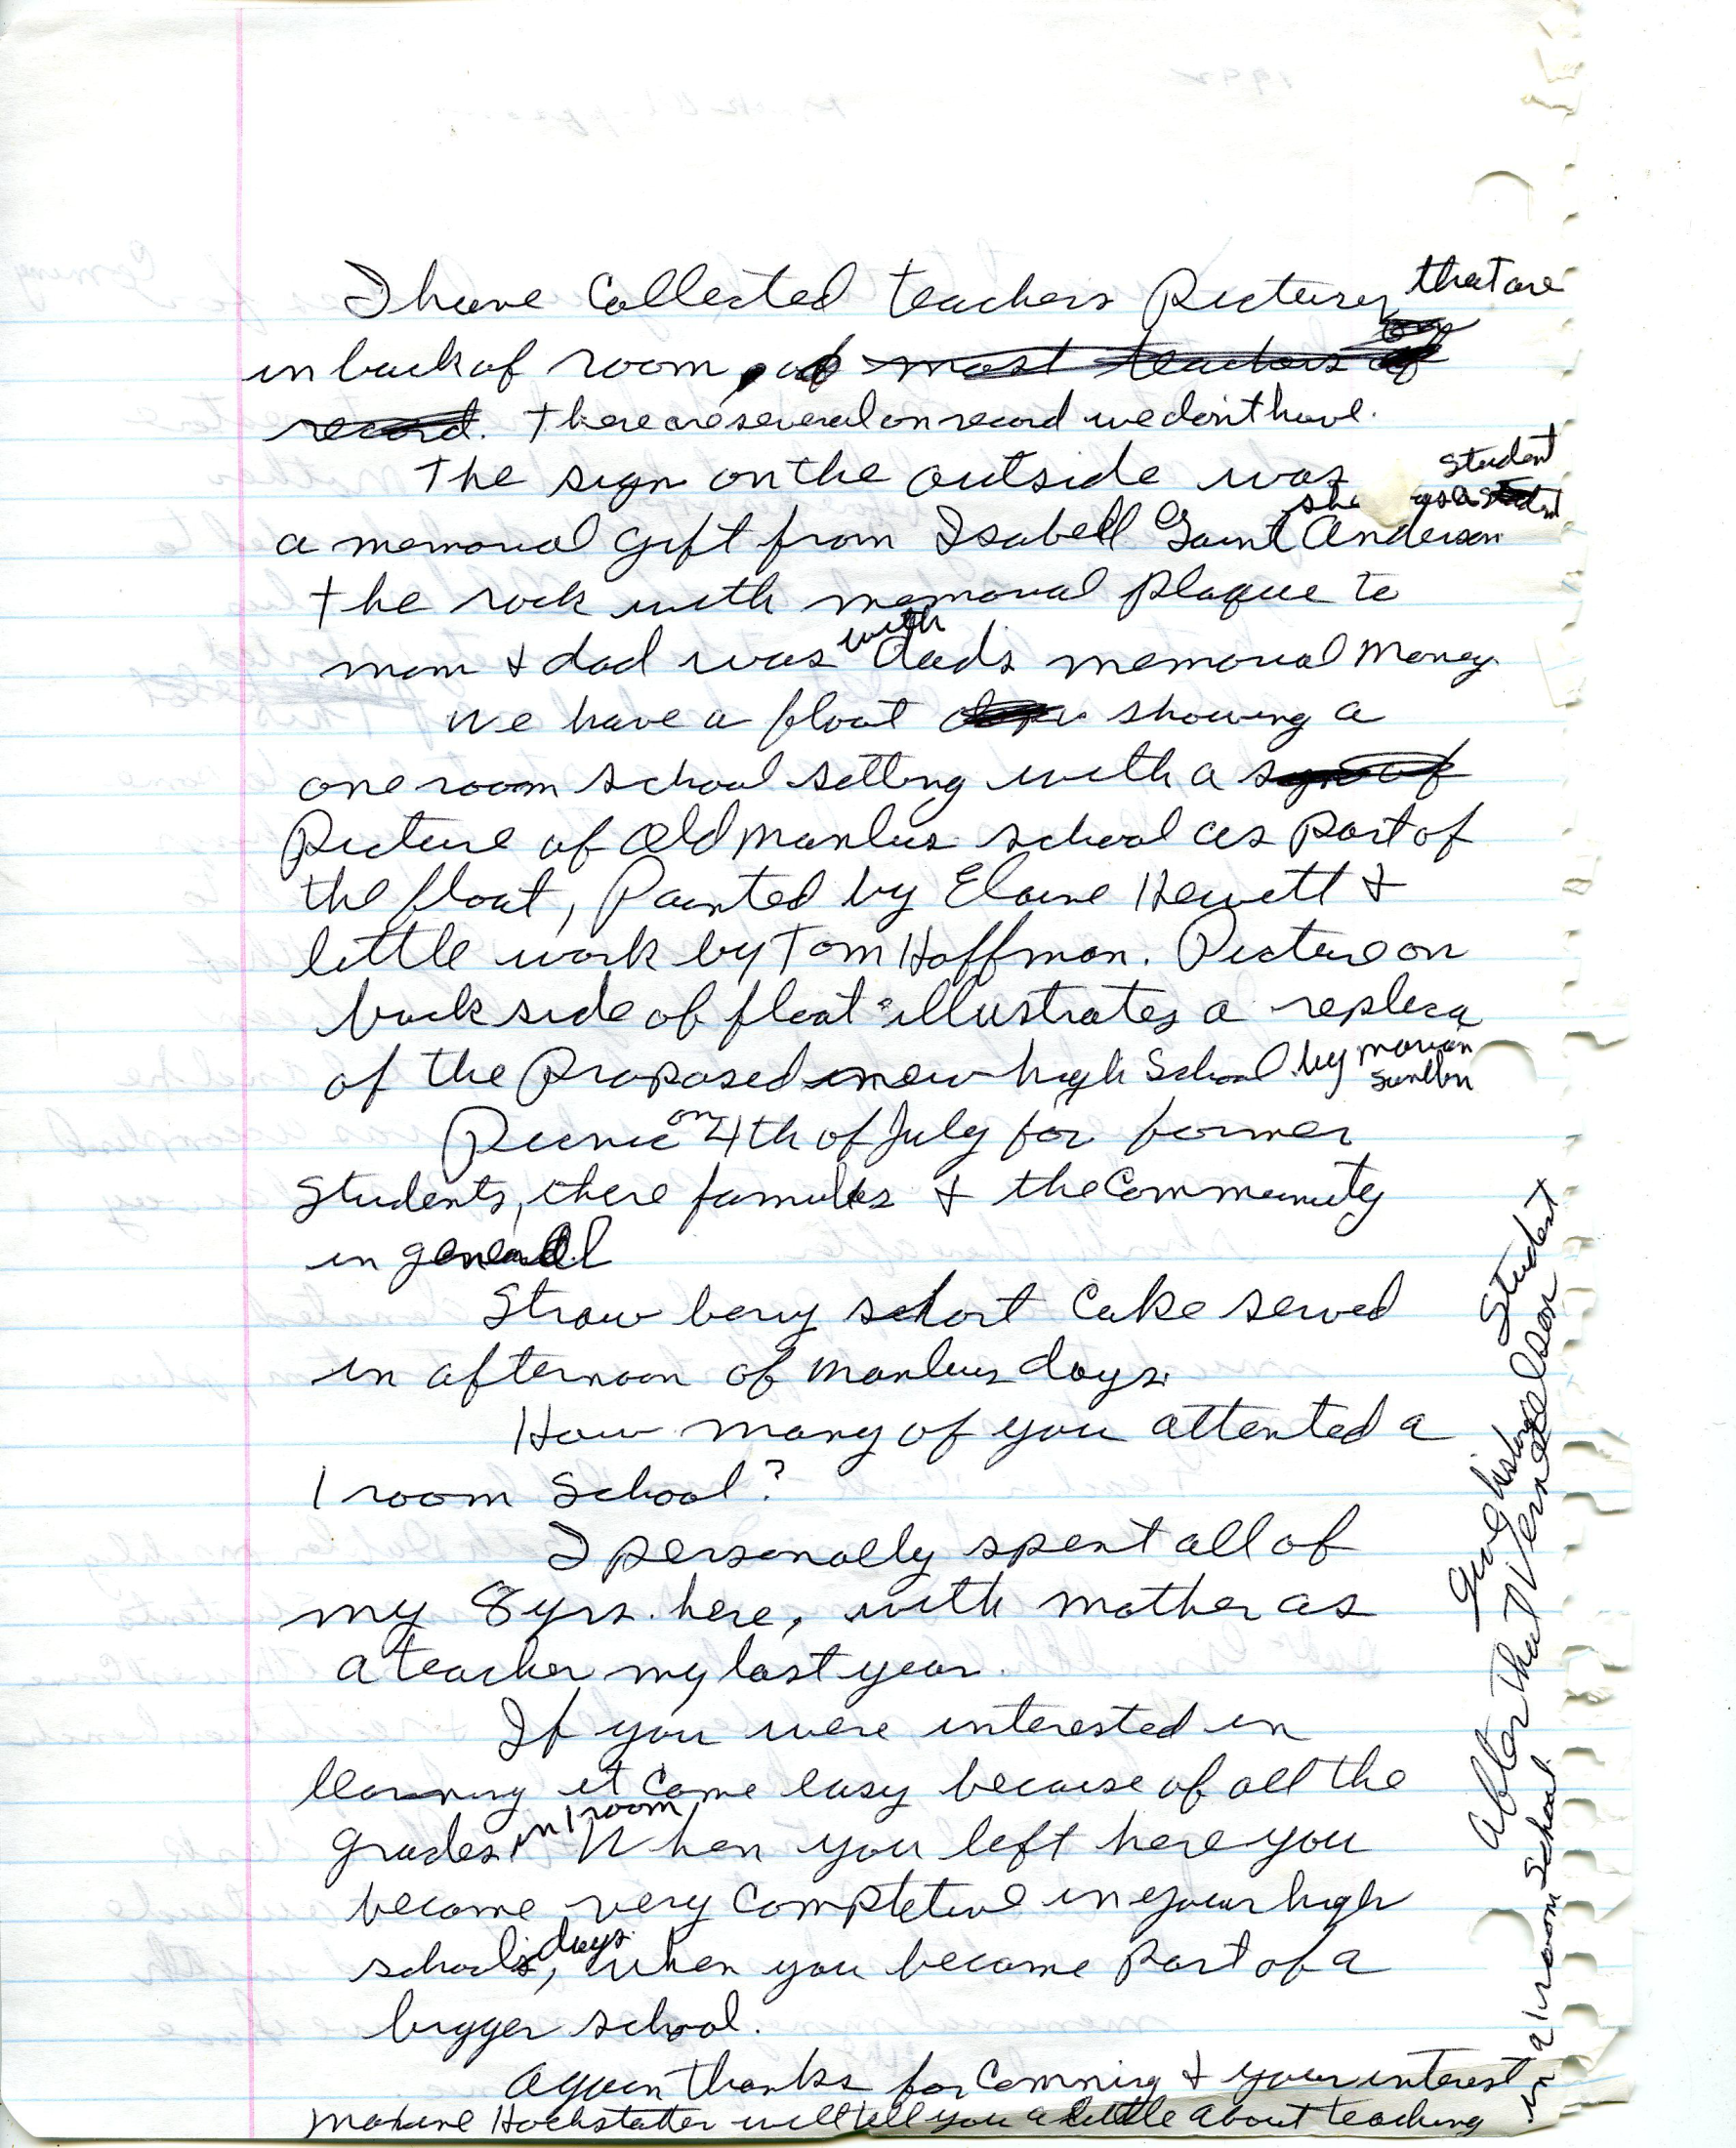 I have Collected teachers Pictures that are
in back of room, of most teachers of
record. There are several on record we don't have.
The sign on the outside was
student
she
a memorial gift from Isabell Gaunt Anderson
the rock with memorial plaque to
mom & dad was with dads memorial money
We have a float showing a
one room school setting with a sign of
Picture of old Manlius school as part of
the float, Painted by Elaine Hewitt &
little work by Tom Hoffman. Picture on
back side of float illustrates a replica
of the Proposed new high School. by marian
Picnic on 4th of July for former
students, there families & the Community
in general
Straw berry short Cake served
in afternoon of Manlius days.
How many of you attented a
1 room School?
I personally spent all of
my 8 yrs. here, with mother as
a teacher my last year.
If you were interested in
learning it came easy because of all the
grades in 1 room. When you left here you
became very Completive in your high
schools, days. When you became Part of a
bigger school.
Again thanks for Comming & your interest
Maxine Hochstatter will tell you a little about teaching
in a 1 room School.
After that Vernette Olson Student
give history